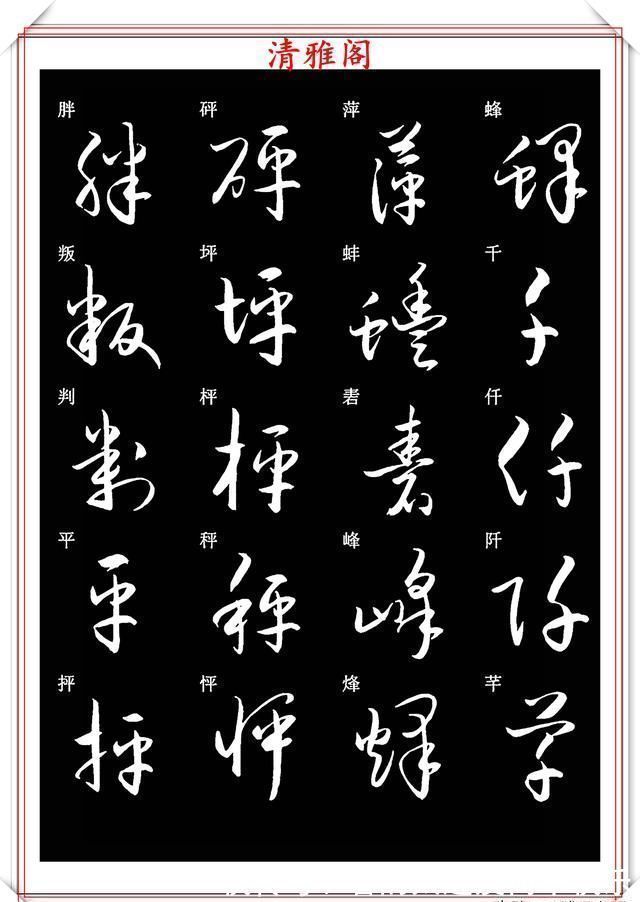 清雅阁
胖 砰 萍 蜂
叛 坪 蚌 千
判 枰 砉 仟
平 秤 峰 阡
抨 怦 烽 芊